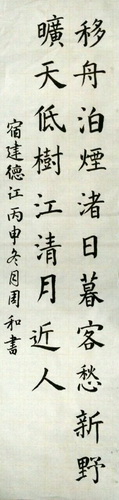 移舟泊煙渚日暮客愁新野
曠天低樹江清月近人
宿建德江丙申冬月周和書